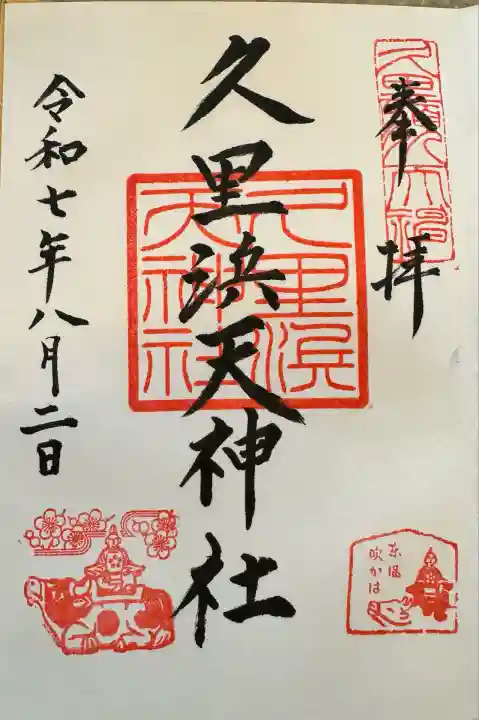 奉拝
久里浜天神社
久里浜
天神社
令和七年八月二日
東風
吹かは